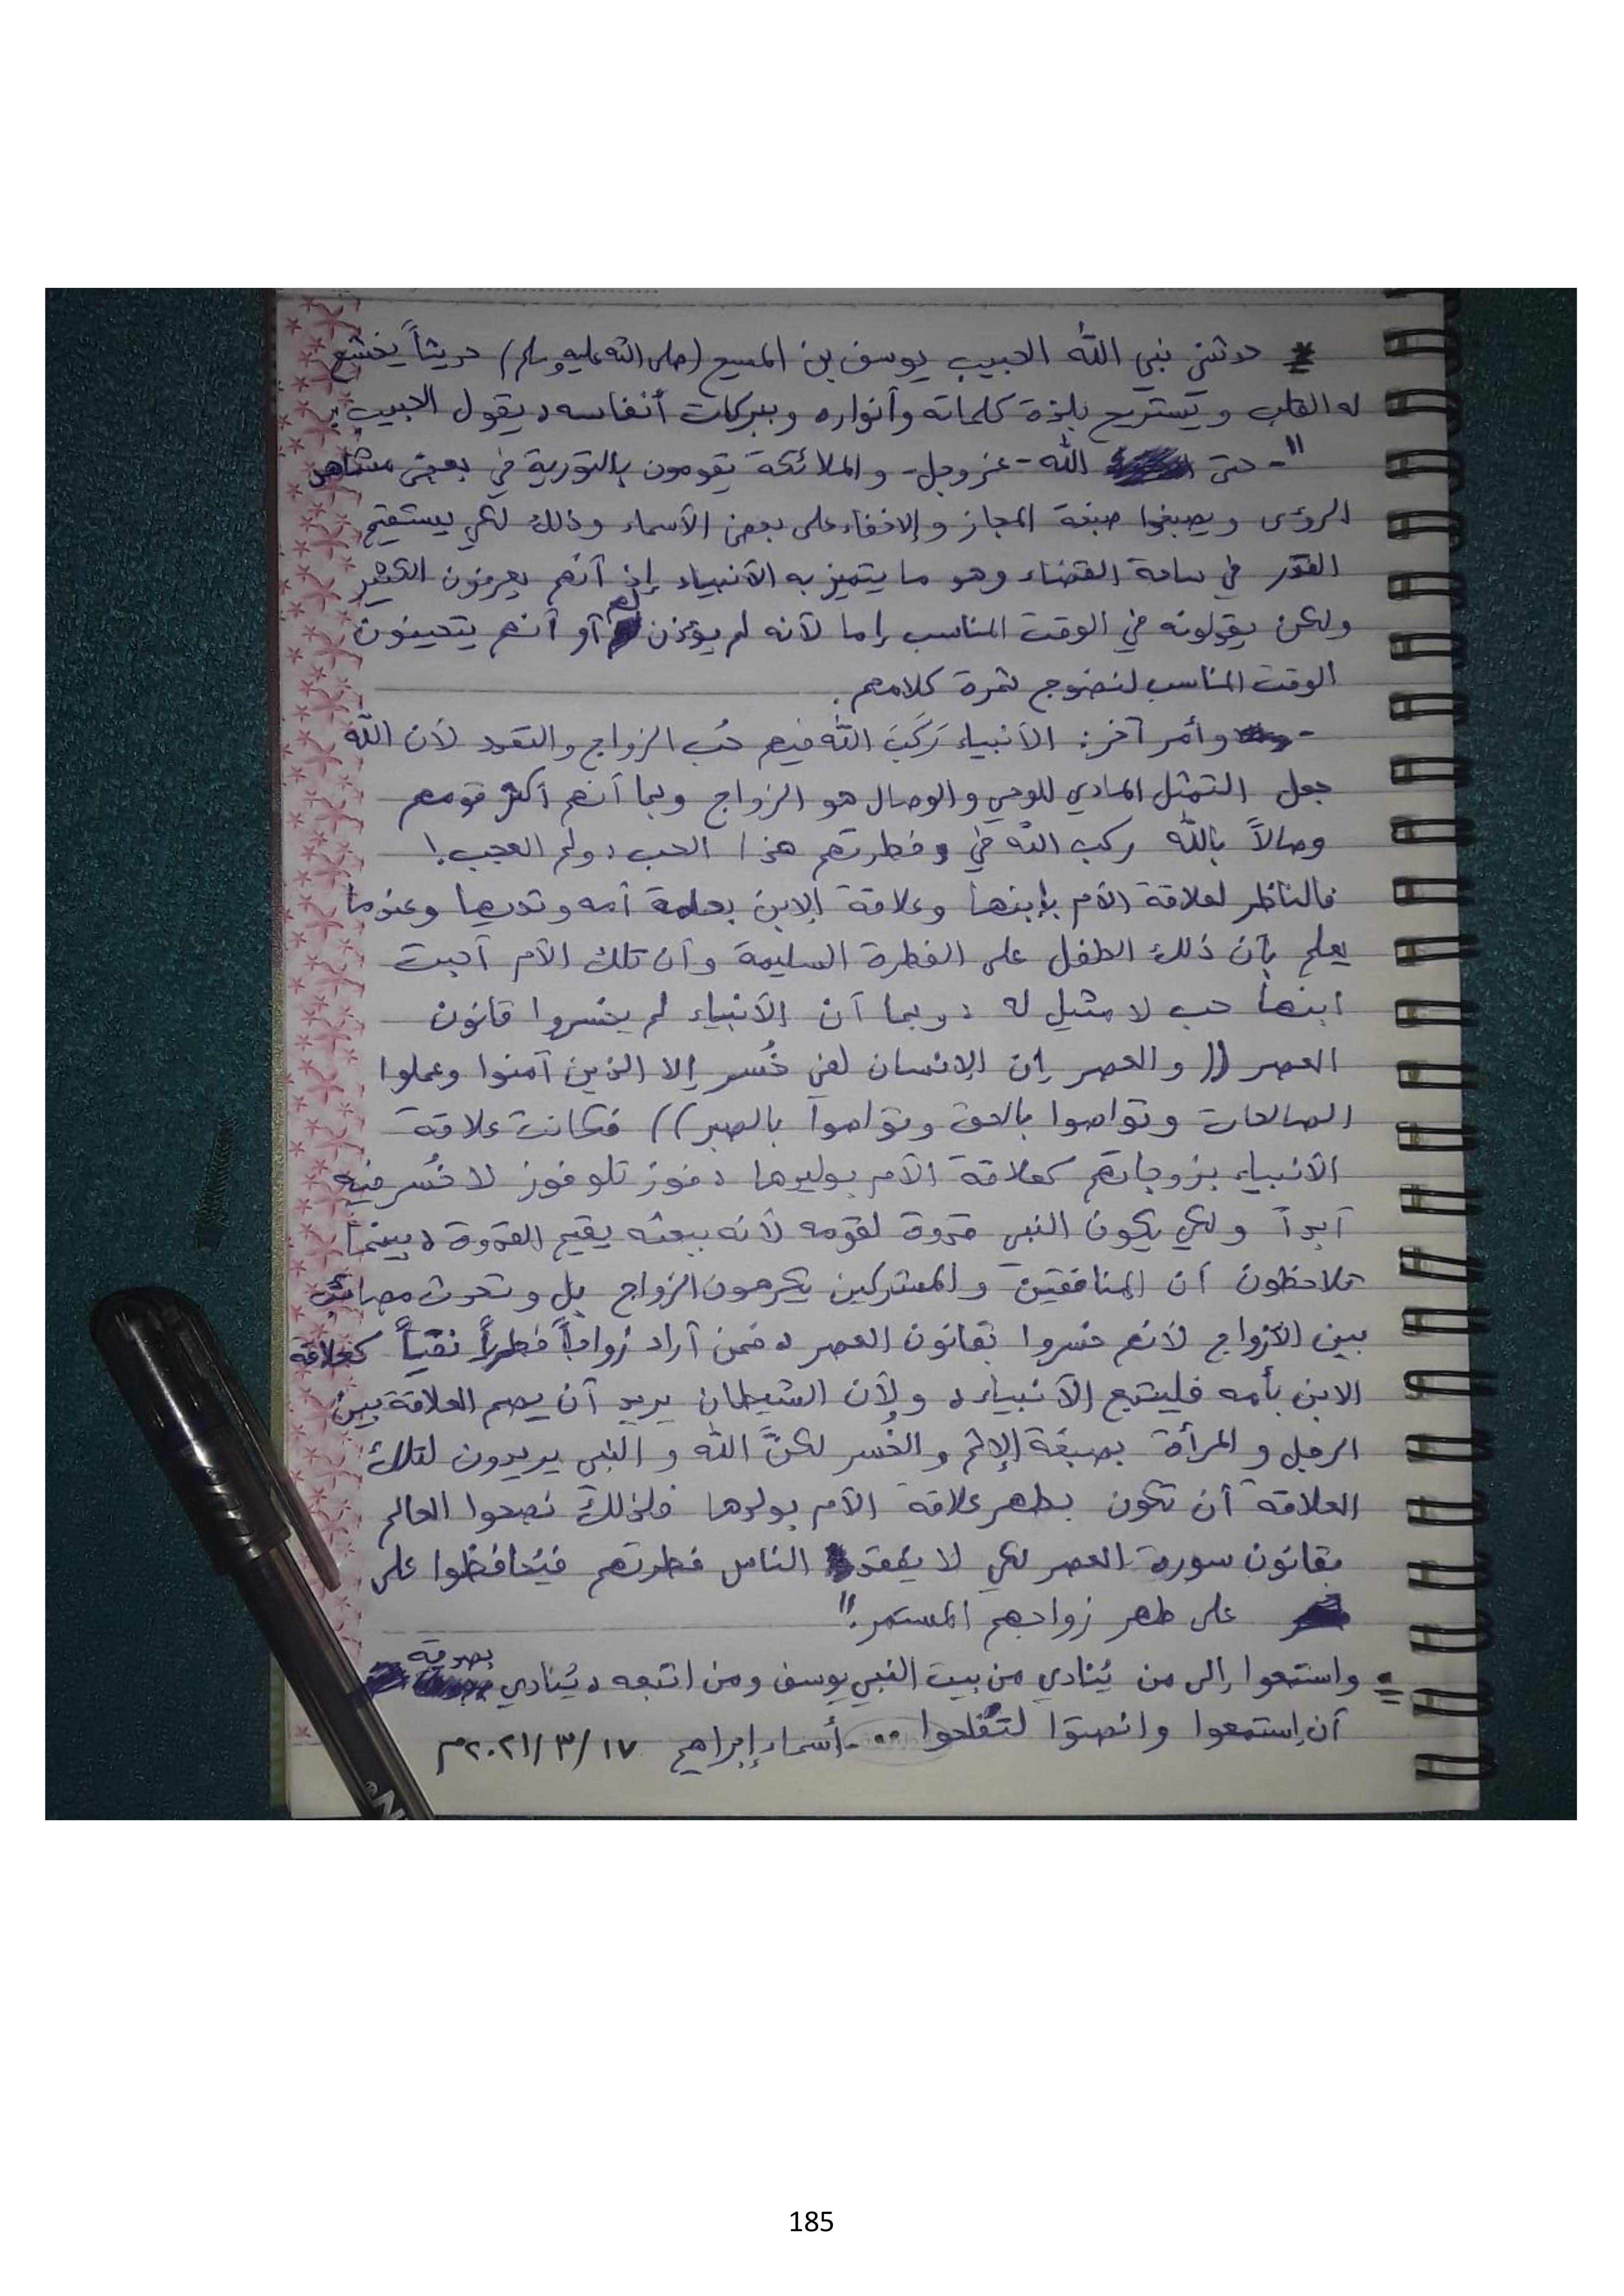 * حدثني نبي الله الحبيب يوسف بن المسيح (صلى الله عليه وسلم) حديثاً يخشع
له القلب و يستريح بلذة كلماته وأنواره وببركات أنفاسه، يقول الحبيب:
"- حتى الله -عز وجل- و الملائكة يقومون بالتورية في بعض مشاهد
الرؤى و يصبغوا صبغة المجاز و الإخفاء على بعض الأسماء وذلك لكي يستقيم
القدر في ساحة القضاء وهو ما يتميز به الأنبياء إذ أنهم يعرفون الكثير
ولكن يقولونه في الوقت المناسب إما لأنه لم يؤذن لهم أو أنهم يتحينون
الوقت المناسب لنضوج ثمرة كلامهم.
- وأمر آخر: الأنبياء رَكَبَ الله فيهم حُب الزواج والتعدد لأن الله
جعل التمثل المادي للوحي و الوصال هو الزواج وبما أنهم أكثر قومهم
وصالاً بالله ركب الله في فطرتهم هذا الحب، ولم العجب!
فالناظر لعلاقة الأم بإبنها وعلاقة الابن بحلمة أمه وثديها وعندما
يعلم بأن ذلك الطفل على الفطرة السليمة وأن تلك الأم أحبت
ابنها حب لا مثيل له، وبما أن الأنبياء لم يخسروا قانون
العصر (( و العصر إن الإنسان لفي خُسر إلا الذين آمنوا وعملوا
الصالحات وتواصوا بالحق وتواصوا بالصبر)) فكانت علاقة
الأنبياء بزوجاتهم كعلاقة الأم بوليدها، فوز تلو فوز لا خُسر فيه
أبداً ولكي يكون النبي قدوة لقومه لأنه ببعثه يقيم القدوة، بينما
تلاحظون أن المنافقين و المشركين يكرهون الزواج بل و تحدث مصائب
بين الأزواج لأنهم خسروا بقانون العصر، فمن أراد زواجاً فطرياً نقياً كعلاقة
الابن بأمه فليتبع الأنبياء، ولأن الشيطان يريد أن يصم العلاقة بين
الرجل و المرأة بصبغة الإثم و الخُسر لكنَّ الله و النبي يريدون لتلك
العلاقة أن تكون بطهر علاقة الأم بولدها فلذلك نصحوا العالم
بقانون سورة العصر لكي لا يفقد الناس فطرتهم فيُحافظوا على
على طهر زواجهم المستمر."
= واستمعوا إلى من يُنادي من بيت النبي يوسف ومن اتبعه، يُنادي بصدقه
أن إستمعوا وانصتوا لتُفلحوا .. - أسماء إبراهيم ١٧ /٣ /٢٠٢١م
185